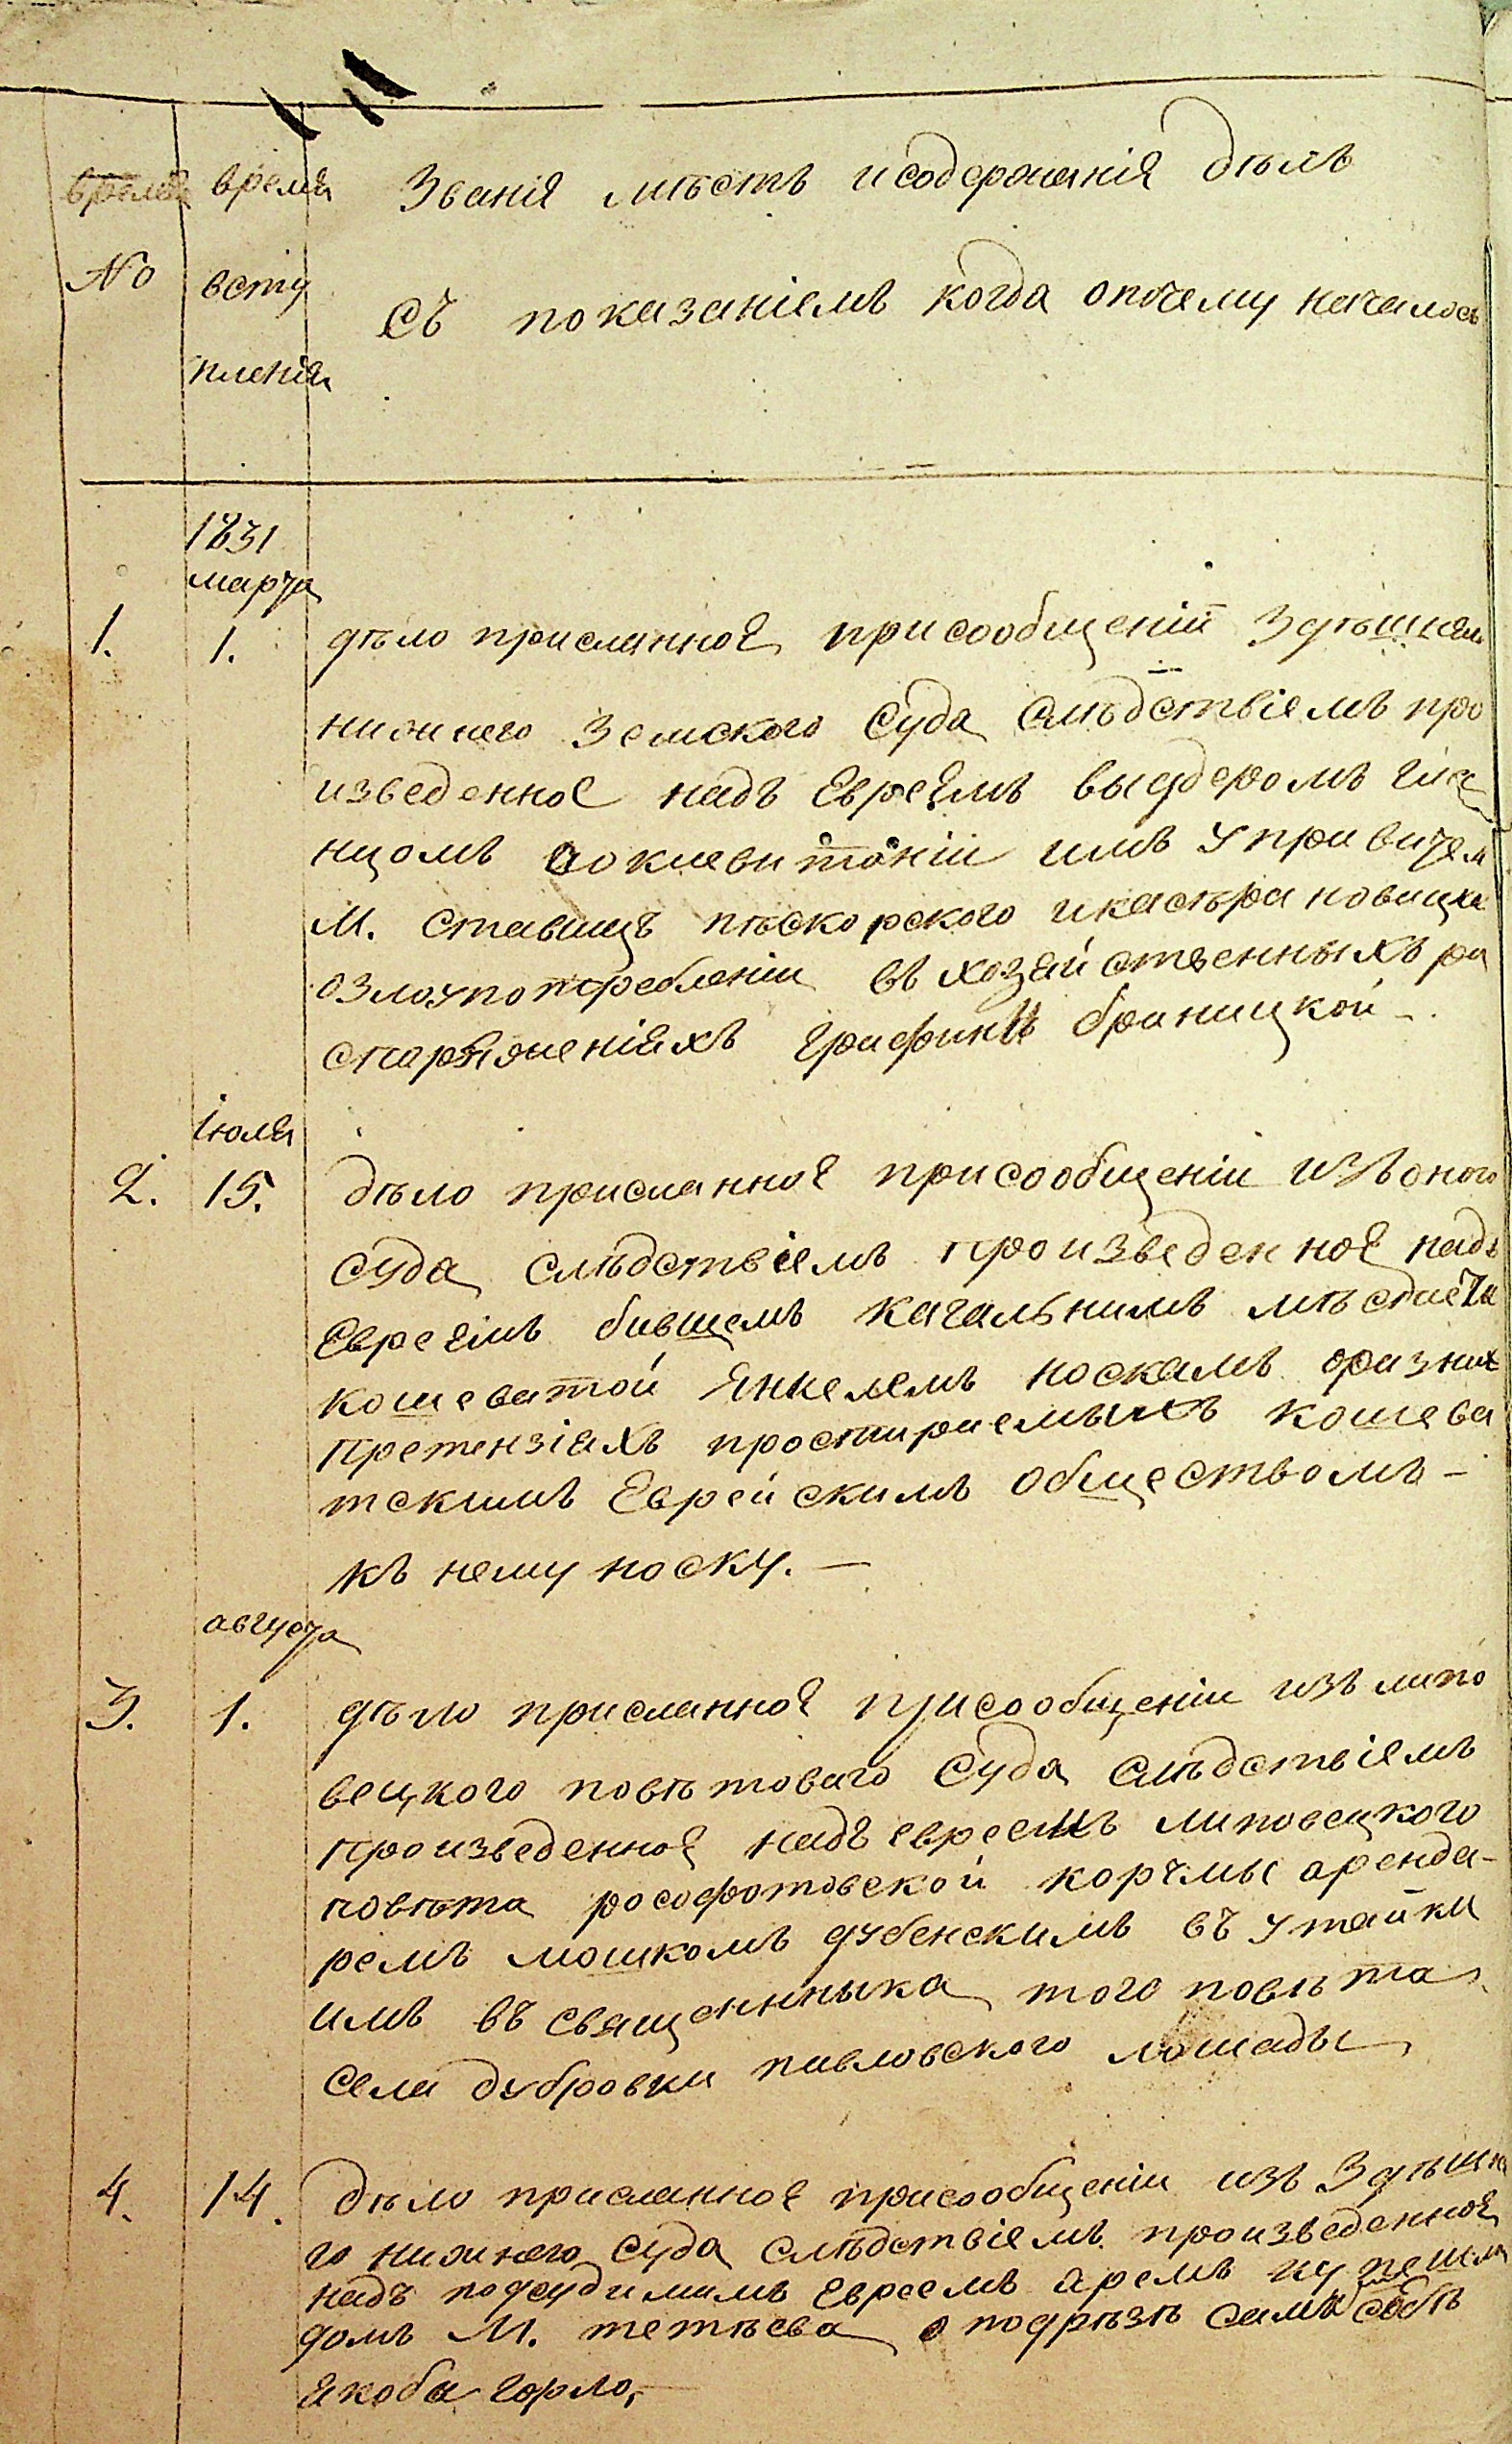 время время Званія мѣстъ исодержанія дѣлъ
No всту
съ показаніемъ когда опочему началось
пленія
1831
марта
1. 1. дѣло присланное присообщеніи Здѣшнем
нижнего Земского Суда слѣдствіемъ про
изведенное надъ Евреемъ
нцомъ имъ
М. Ставищъ новицка
озлоупотребленіи въ хозяйственныхъ ра
споряженіяхъ графини браницкой
Іюля
2. 15. дѣло присланное присообщеніи изъ оного
Суда слѣдствіемъ произведенное надъ
Евреемъ бившемъ кагальнимъ мѣстечка
кошеватой Янкелемъ носкамъ оразних
претензіяхъ простираемыхъ кошева
тскимъ Еврейскимъ обществомъ –
къ нему носку. —
августа
3. 1. дѣло присланное присообщеніи изъ липо
вецкого повѣтоваго Суда слѣдствіемъ
произведенное надъ евреемъ липовецкого
повѣта росохотовской корчмы аренда-
ремъ мошкомъ дубенскимъ въ утайки
имъ въ священныка того повѣта
села дубровки павловского лошады
4. 14. дѣло присланное присообщеніи изъ Здѣшне
го нижнего Суда слѣдствіемъ произведенное
надъ подсудимимъ Евреемъ
домъ М. тетѣева о подрѣзѣ самъ себѣ
якоба горло,—